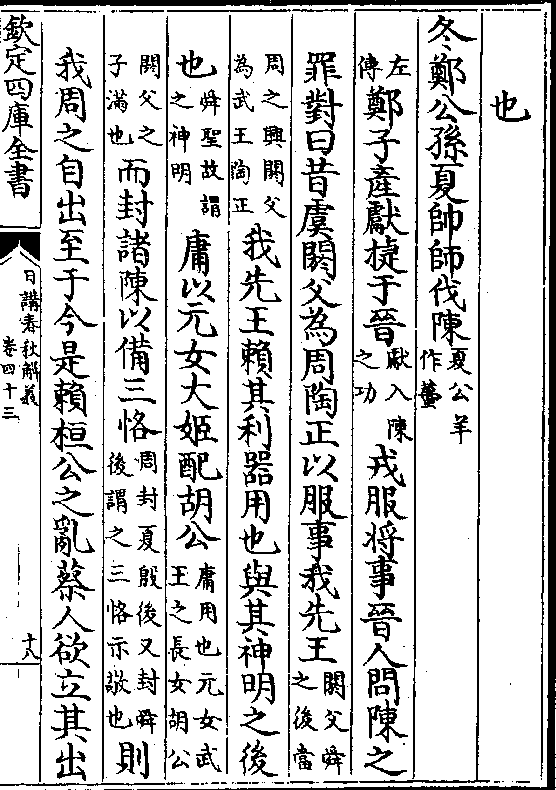 也
冬鄭公孫夏帥師伐陳夏公羊作蠆
左傳鄭子產獻捷于晉獻入陳之功戎服將事晉人問陳之
罪對曰昔虞閼父為周陶正以服事我先王閼父舜之後當
周之興閼父為武王陶正我先王賴其利器用也與其神明之後
也舜聖故謂之神明庸以元女大姬配胡公庸用也元女武王之長女胡公
閼父之子滿也而封諸陳以備三恪周封夏殷後又封舜後謂之三恪示敬也則
我周之自出至于今是賴桓公之亂蔡人欲立其出
欽定四庫全書
日講春秋解義
卷四十三
十八